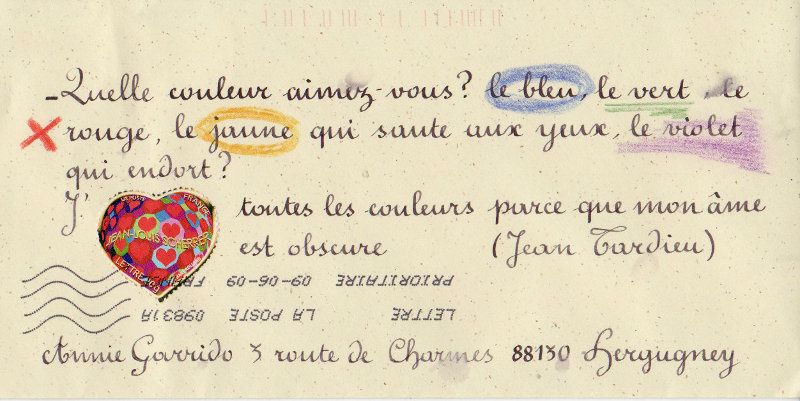 - Quelle couleur aimez-vous? le bleu, le vert, le
rouge, le jaune qui saute aux yeux, le violet
qui endort?
J' toutes les couleurs parce que mon âme
est obscure (Jean Tardieu)
FRANCE
JEAN-LOUIS SCHERRER
LETTRE 20g
LETTRE LA POSTE 09831A
PRIORITAIRE 09-06-09
Annie Garrido 3 route de Charmes 88130 Hergugney